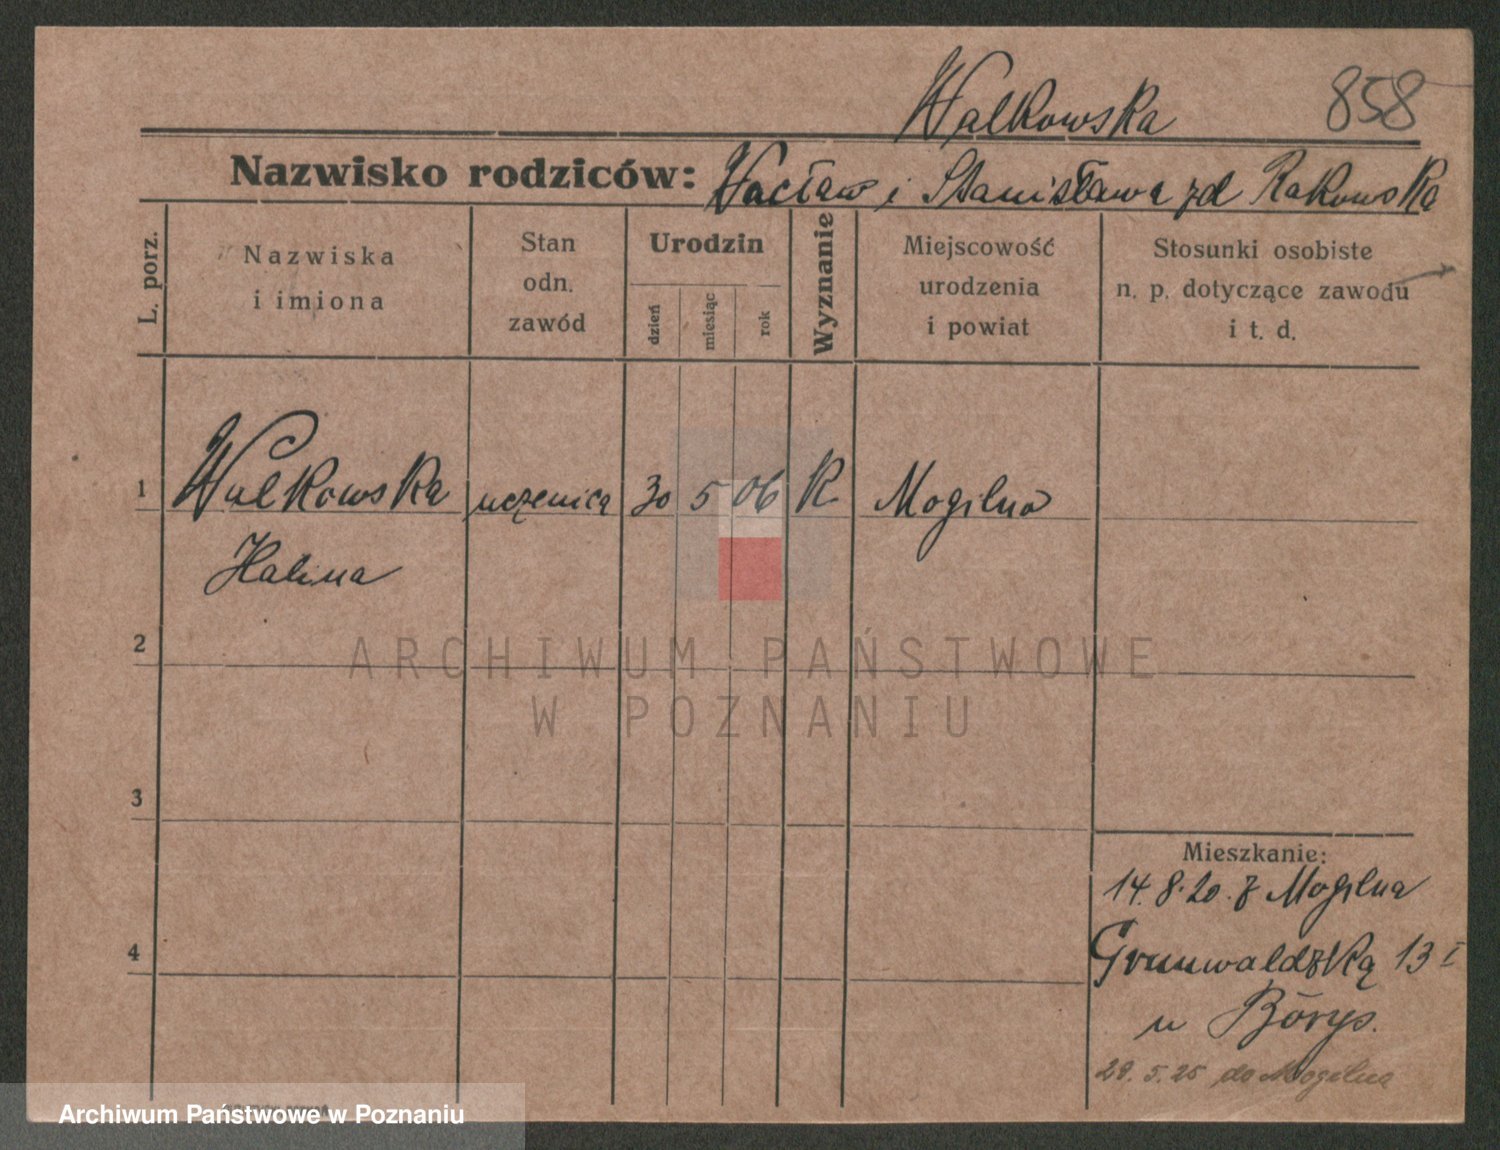 Walkowska 858
Nazwisko rodziców: Wacław i Stanisława zd Rakowska
L. porz.
Nazwiska
i imiona
Stan
odn.
zawód
Urodzin
dzień
miesiąc
rok
Wyznanie
Miejscowość
urodzenia
i powiat
Stosunki osobiste
n. p. dotyczące zawodu
i t. d.
1 Walkowska uczenica 30 5 06 K Mogilno
Halina
2
3
4
Mieszkanie:
14.8.20. z Mogilna
Grunwaldzką 13 I
u Börys.
29.5.25 do Mogilna
ARCHIWUM PAŃSTWOWE
W POZNANIU
Archiwum Państwowe w Poznaniu